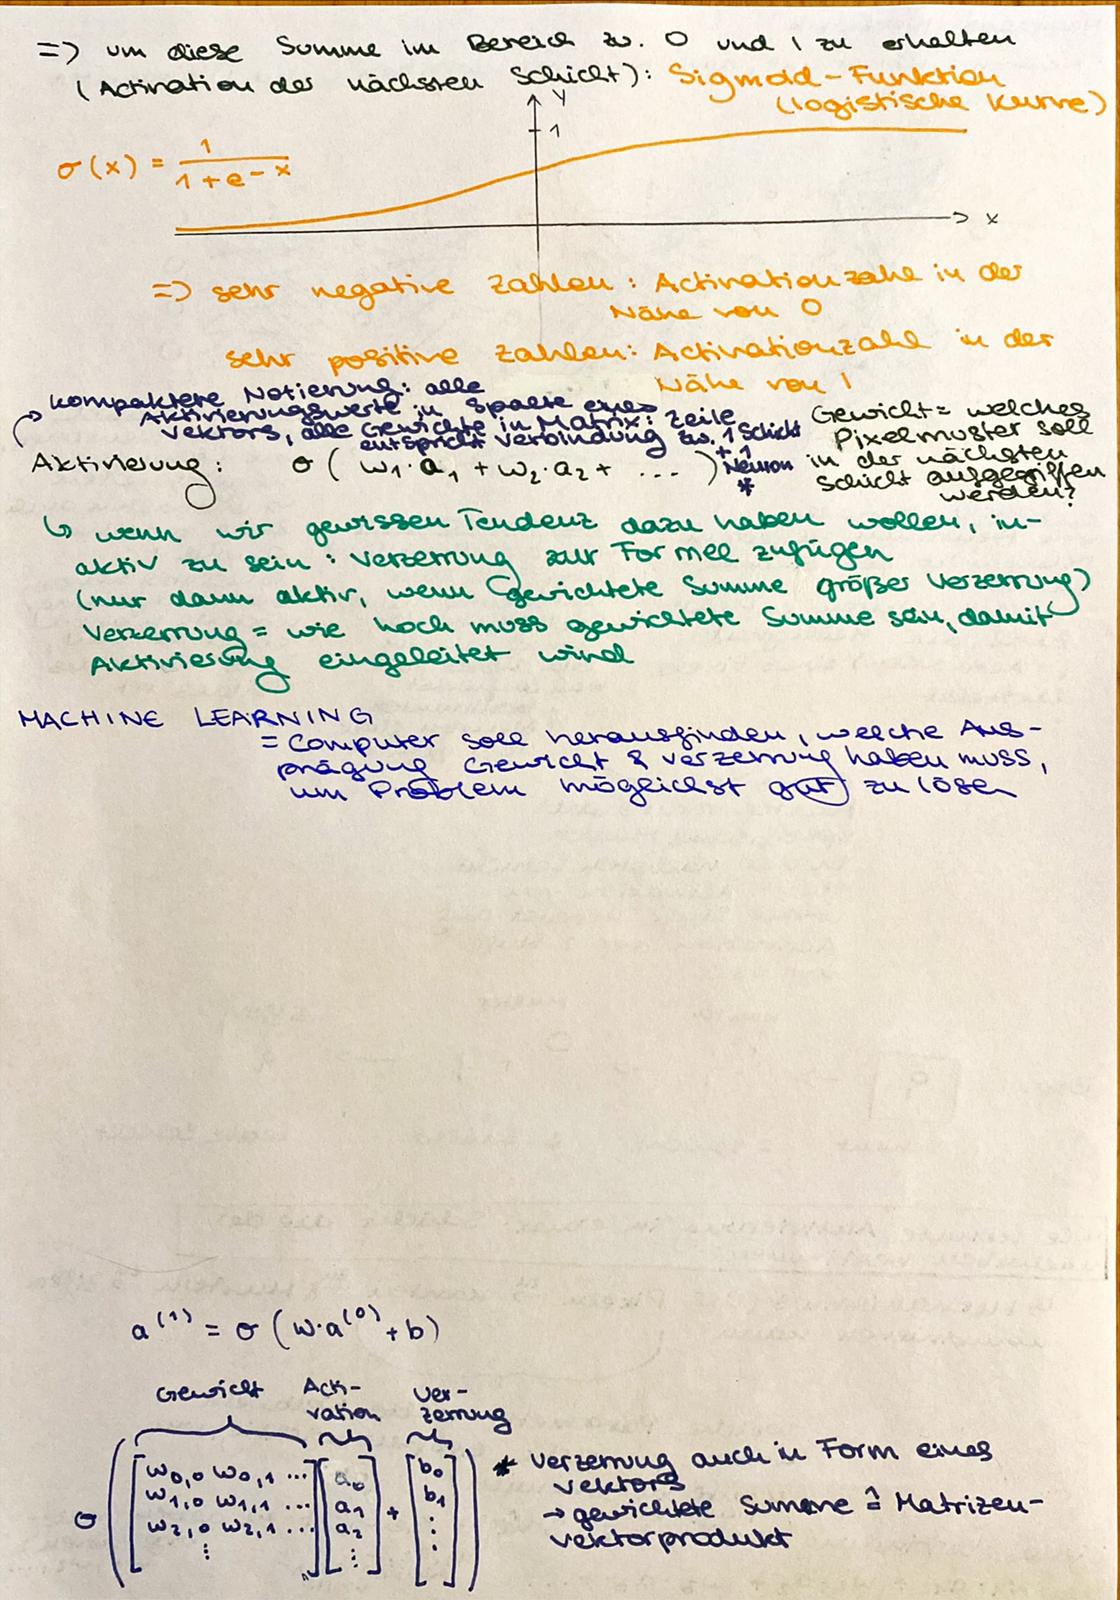 => um diese Summe im Bereich zw. 0 und 1 zu erhalten
(Activation der nächsten Schicht): Sigmoid-Funktion
(logistische Kurve)
y
1
σ(x) = 1 / (1 + e^-x)
x
=> sehr negative Zahlen: Activationzahl in der
Nähe von 0
sehr positive Zahlen: Activationzahl in der
Nähe von 1
kompaktere Notierung: alle
Aktivierungswerte in Spalte eines
Vektors, alle Gewichte in Matrix: Zeile
entspricht Verbindung zw. 1 Schicht
+ 1
Neuron
*
Gewicht = welches
Pixelmuster soll
in der nächsten
Schicht aufgegriffen
werden?
Aktivierung: σ(w₁·a₁ + w₂·a₂ + ...)
↳ wenn wir gewissen Tendenz dazu haben wollen, in-
aktiv zu sein: Verzerrung zur Formel zufügen
(nur dann aktiv, wenn gewichtete Summe größer Verzerrung)
Verzerrung = wie hoch muss gewichtete Summe sein, damit
Aktivierung eingeleitet wird
MACHINE LEARNING
= Computer soll herausfinden, welche Aus-
prägung Gewicht & Verzerrung haben muss,
um Problem möglichst gut zu lösen
a⁽¹⁾ = σ(w·a⁽⁰⁾ + b)
Gewicht Acti- Ver-
vation zerrung
w0,0 w0,1 ... a0 b0
w1,0 w1,1 ... a1 b1
σ w2,0 w2,1 ... a2 + ⋮
⋮ ⋮
* Verzerrung auch in Form eines
Vektors
→ gewichtete Summe ≙ Matrizen-
vektorprodukt